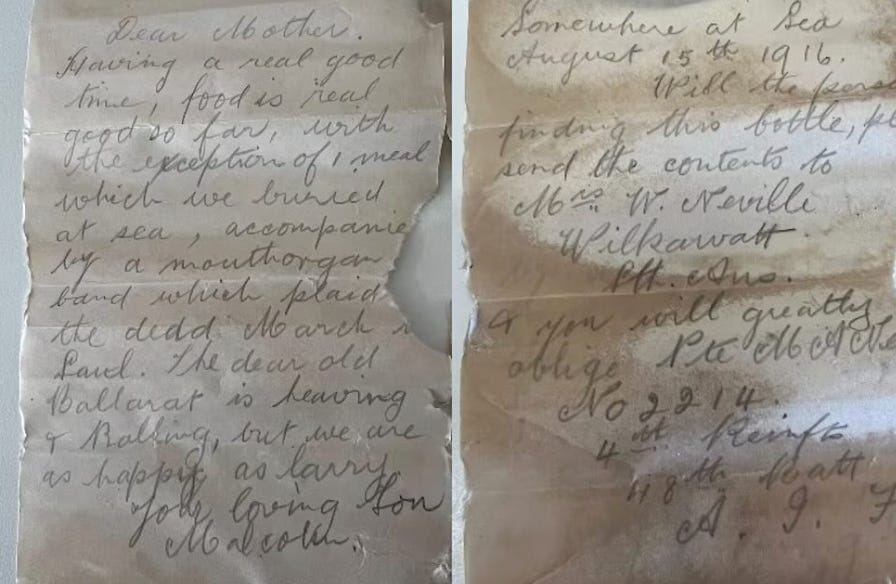 Dear Mother.
Having a real good
time, food is real
good so far, with
the exception of 1 meal
which we buried
at sea, accompanie
by a mouthorgan
band which plaid
the dedd March
Saul. The dear old
Ballarat is heaving
& Rolling, but we are
as happy as larry.
Your loving Son
Malcolm.
Somewhere at Sea
August 15th 1916.
Will the pers
finding this bottle, pl
send the contents to
Mrs W. Neville
Wilkawatt
Sth. Aus.
& you will greatly
oblige Pte M A Ne
No 2214.
4th Reinfts
48th Batt
A. I. F